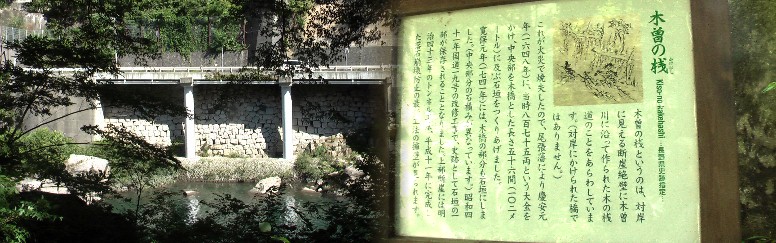 木曽の桟
Kiso-no kakehashi
長野県史跡指定
木曽の桟というのは、対岸
に見える断崖絶壁に木曽
川に沿って作られた木の桟
道のことをあらわしていま
す。（対岸にかけられた橋で
はありません。）
これが火災で焼失したので、尾張藩により慶安元
年（一六四八年）に、当時八百七十五両という大金を
かけ、中央部を木橋とした長さ五十六間（一〇二メ
ートル）に及ぶ石垣をつくりあげました。
寛保元年（一七四一年）には、木橋の部分も石垣にしま
した。（中央部分の石積みが異なっています。）昭和四
十一年国道一九号の改修で
史跡として石垣の一
部が保存されることとなりました。上部断崖には明
治四十三年のトンネル
平成十一年に完成し